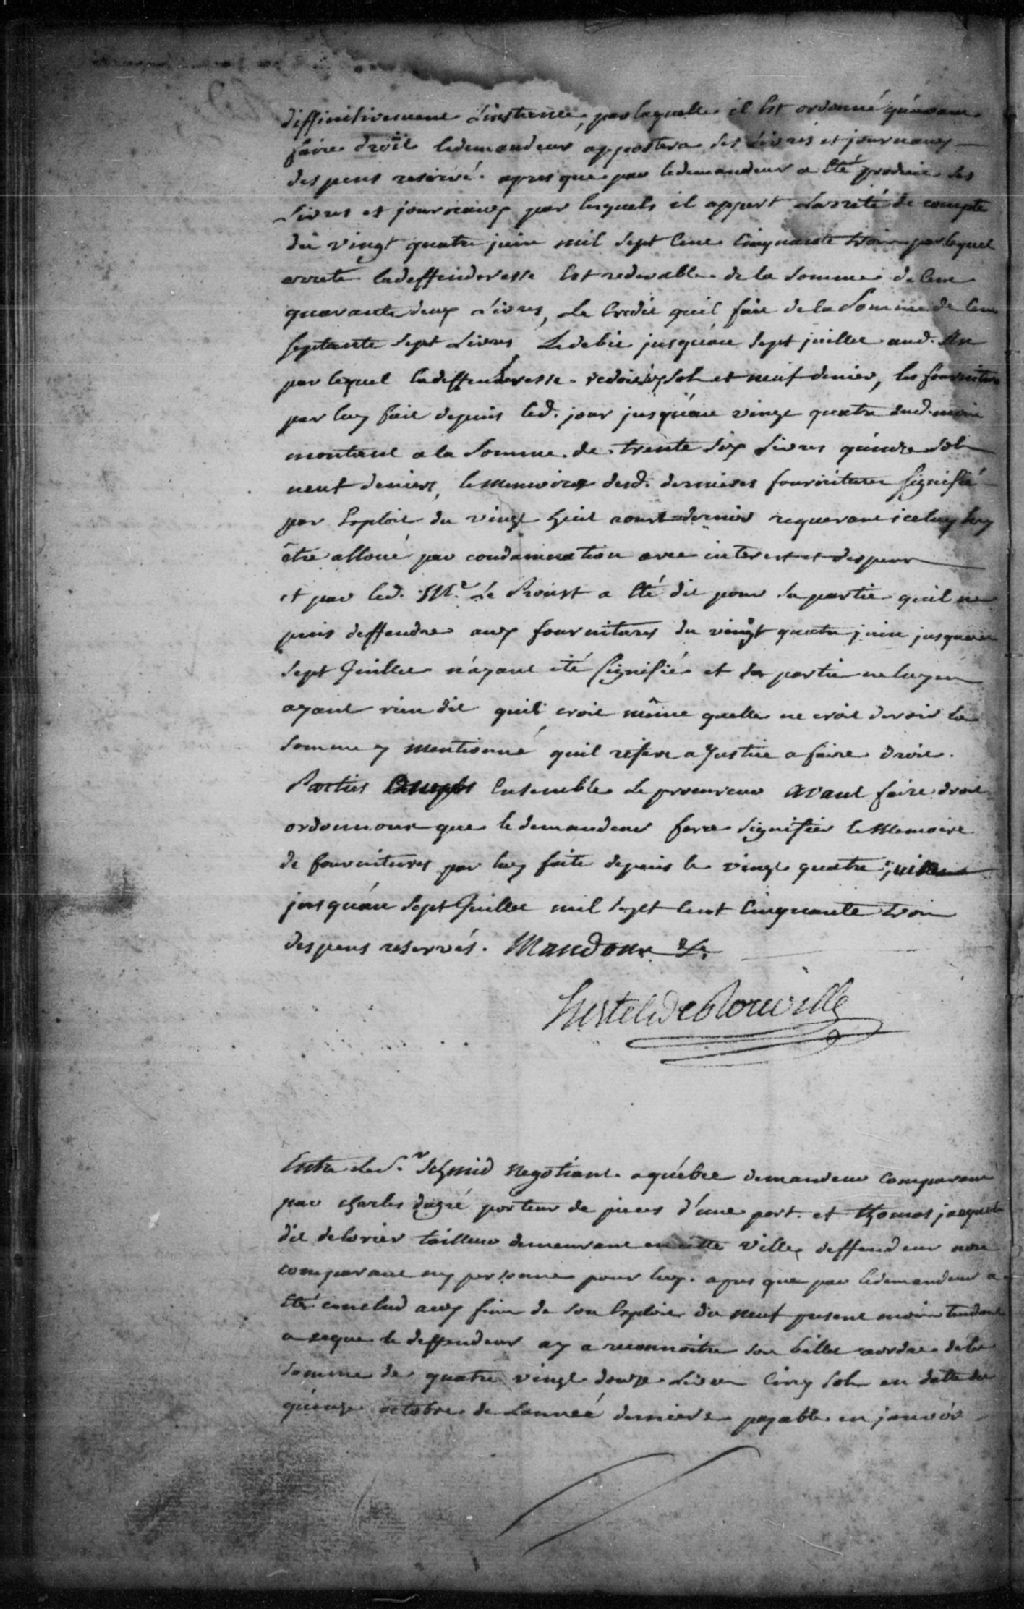 diffinitivement L'instance, par laquelle il est ordonné qúavant
faire droit ledemandeur apportera ses Livres et journaux
despens reservé. apres que par ledemandeur a Eté produit ses
Livres et journaux par lesquels il appert Larrêté de compte
du vingt quatre juin mil sept Cent Cinquante trois par lequel
arreté ladeffenderesse Est redevable de la Somme de Cent
quarante deux Livres, Le Credit quil fait de la Somme de Cent
septante sept Livres Le debit jusqu'au sept juillet aud. An
par lequel ladeffenderesse redoit Sols et neuf denier, les fournitures
par luy fait depuis led. jour jusqu'au vingt quatre dud. mois
montant a la Somme de trente six Livres quinze sols
neuf deniers, le memoire desd. dernieres fournitures signifié
par Exploit du vingt huit aoust dernier requerant iceluy luy
être alloué par condamnation avec interest et despens
et par led. Mr. Le Proust a Eté dit pour sa partie quil ne
peut deffendre aux fournitures du vingt quatre juin jusquau
sept Juillet n'ayant été signifié et sa partie ne luy en
ayant rien dit quil croit même quelle ne croit devoir la
somme y mentionné quil refere a Justice a faire droit.
Parties Ensemble Le procureur avant faire droit
ordonnons que le demandeur fera signifier le Memoire
de fournitures par luy faite depuis le vingt quatre juin
jusqu'au sept Juillet mil sept Cent Cinquante trois
despens reservés. Mandons &c.
hertel de Rouville
Entre le Sr. Schmid negotiant a québec demandeur comparant
par charles dugré porteur de pieces d'une part. et thomas jacques
dit delorier tailleur demeurant en cette ville, deffendeur non
comparant ny personne pour luy. apres que par ledemandeur a
Eté conclud aux fins de son Exploit du neuf present mois tendant
a ceque le deffendeur ay a reconnoitre son billet aordre de la
somme de quatre vingt douze Livres Cinq sols en datte du
quinze octobre de L'anneé derniere payable en janvier